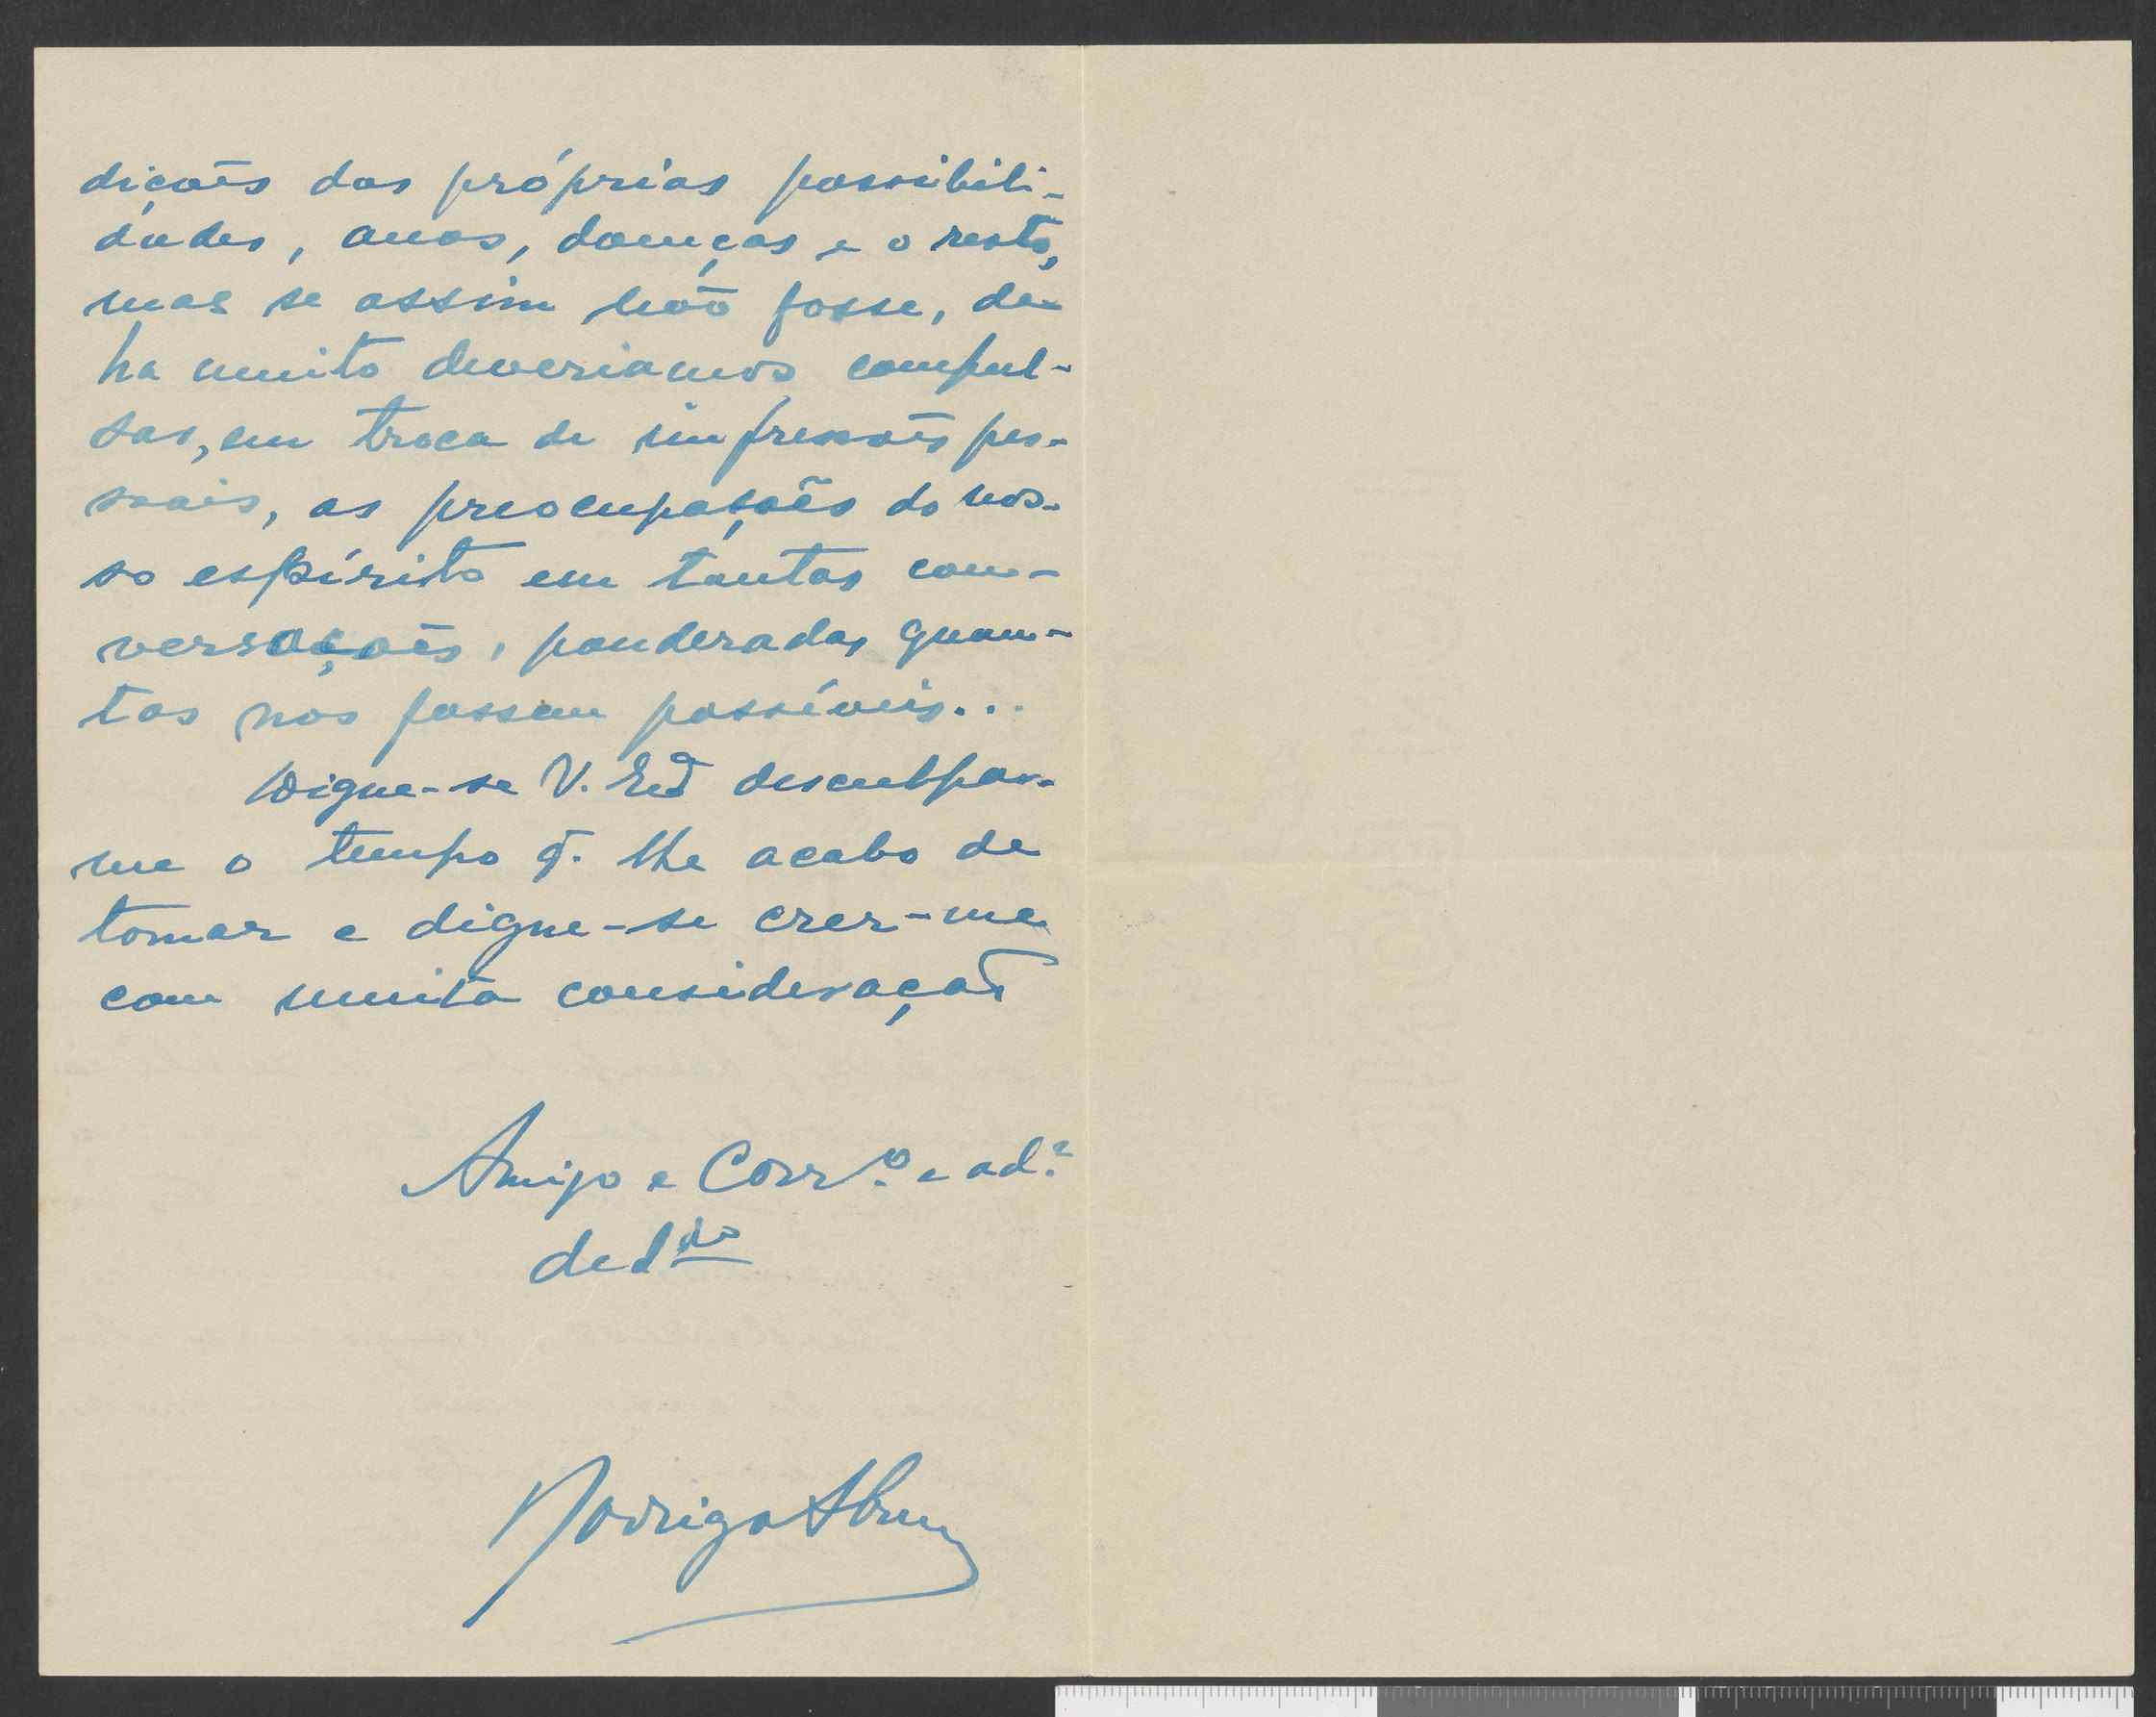 dições das próprias possibili-
dades, anos, doenças e o resto,
mas se assim não fosse, de
ha muito deveriamos compul-
sar, em troca de impressões pes-
soais, as preocupações do nos-
so espírito em tantas con-
versações, ponderadas quan-
tas nos fossem possíveis...
Digne-se V. Exª desculpar-
me o tempo q. lhe acabo de
tomar e digne-se crer-me
com muita consideração
Amigo e Corr.º e ad.ºr
ded.do
Rodrigo Abreu